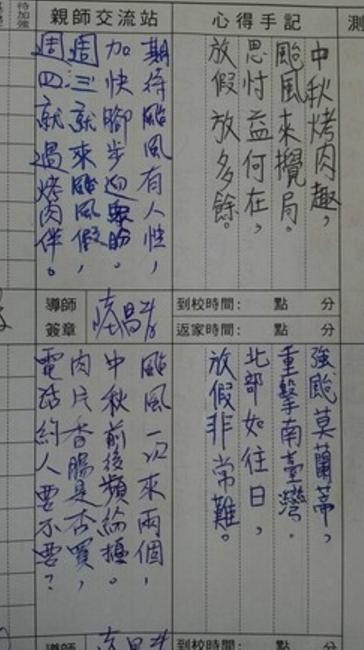 測
心得手記
中秋烤肉趣，
颱風來攪局。
思忖益何在，
放假放多餘。
親師交流站
期待颱風有人性，
加快腳步迎眾盼。
週三就來颱風假，
週四就過烤肉伴。
待加強
到校時間： 點 分
返家時間： 點 分
導師簽章
強颱莫蘭蒂，
重擊南臺灣．
北部如往日，
放假非常難。
颱風一次來兩個，
中秋前後頻綸擾。
肉片香腸是否買，
電話約人要不要？
導師